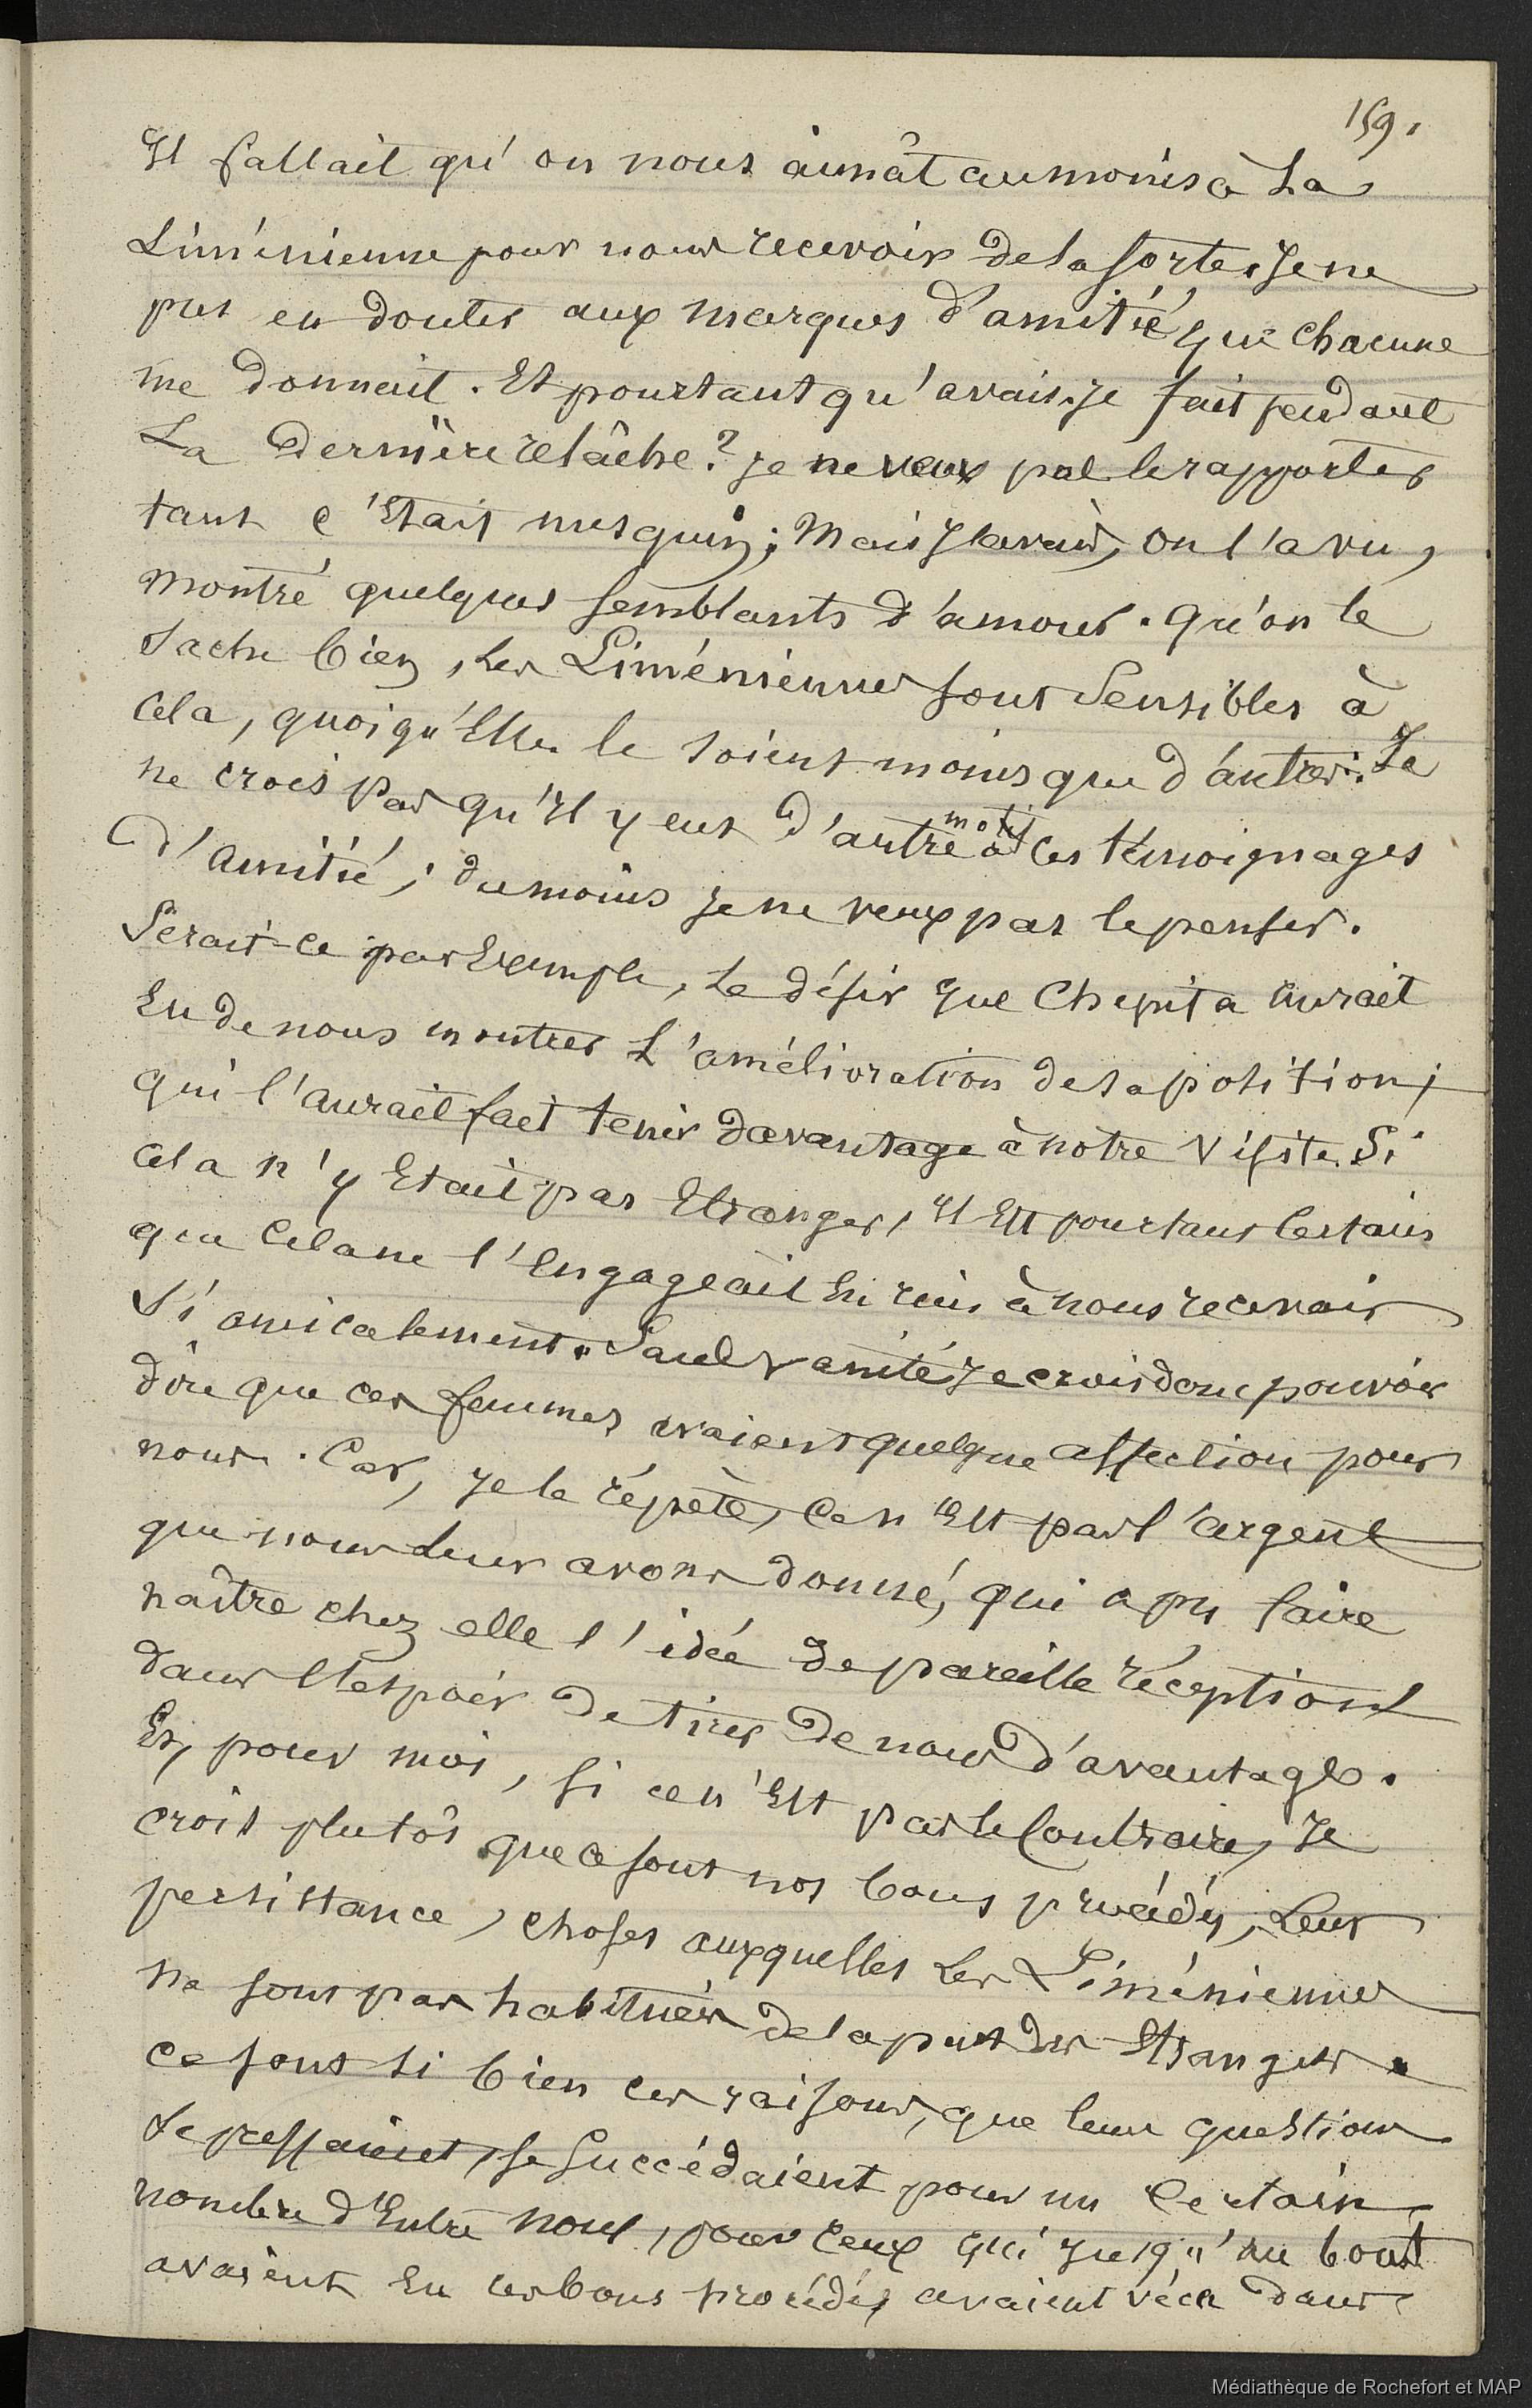 159.
Il fallait qu'on nous aimât au moins à La
Liménienne pour nous recevoir de la sorte. Je ne
pus en douter aux marques d'amitié que chacune
me donnait. Et pourtant qu'avais-je fait pendant
La dernière relâche? Je ne veux pas le rapporter
tant c'Etait mesquin; Mais J'avais, on l'a vu,
montré quelques semblants d'amour. Qu'on le
Sache bien, Les Liméniennes sont Sensibles à
Cela, quoiqu'Elles le soient moins que d'autres. Je
ne crois pas qu'Il y eut d'autre motif à ces témoignages
d'amitié; du moins Je ne veux pas le penser.
Serait-ce par Exemple, Le désir que Chepita aurait
Eu de nous montrer L'amélioration de sa position;
qui l'aurait fait tenir davantage à notre visite. Si
Cela n'y Etait pas Etranger, Il Est pourtant Certain
que Cela ne l'Engageait En rien à nous recevoir
Si amicalement. Sauf vanité, Je crois donc pouvoir
dire que ces femmes avaient quelque affection pour
nous. Car, Je le répète, Ce n'Est pas l'argent
que nous Leur avons donné, qui a pu faire
naître chez elle l'idée de pareille réception
dans l'espoir de tirer de nous d'avantage.
Et, pour moi, si ce n'Est pas le Contraire, Je
crois plutôt que ce sont nos bons procédés, Leur
persistance, choses auxquelles Les Liméniennes
ne sont pas habituées de la part des Etrangers.
Ce sont si bien ces raisons, que leurs questions
Se pressaient, se Succédaient pour un Certain
nombre d'Entre nous, pour Ceux qui jusqu'au bout
avaient Eu ces bons procédés avaient vécu dans
Médiathèque de Rochefort et MAP